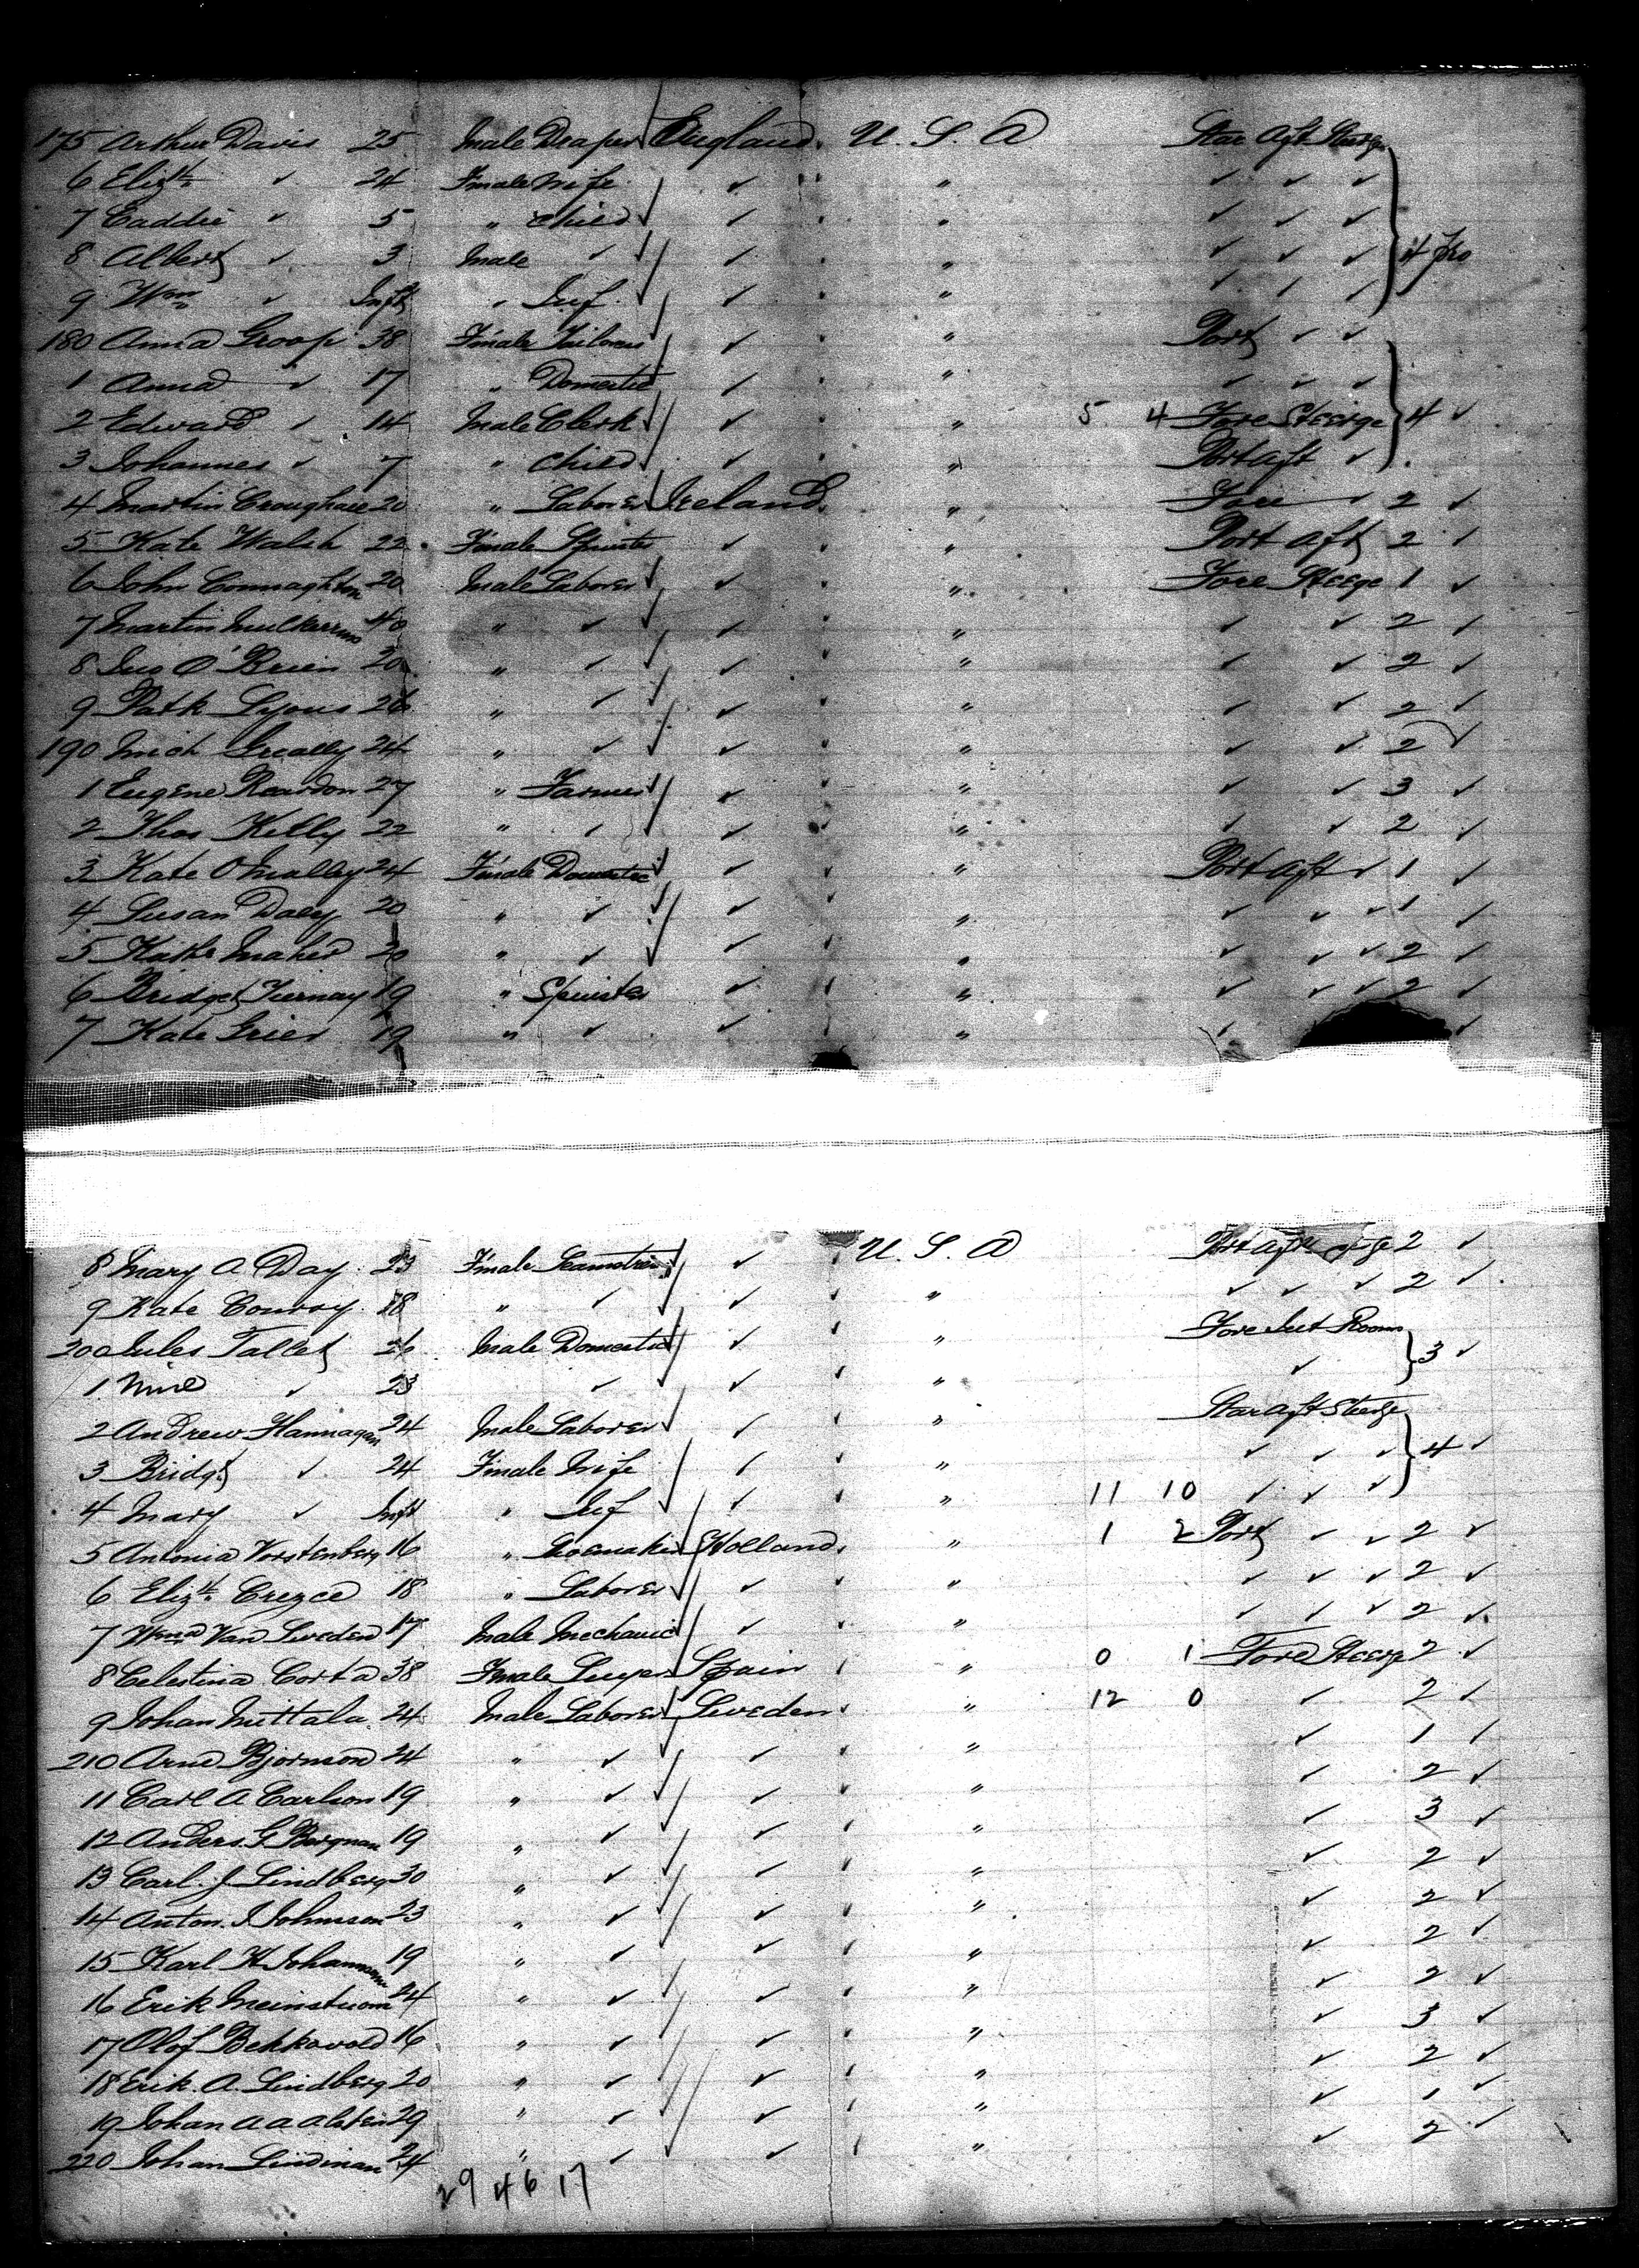 175 Arthur Davis 25 Male Draper England U. S. A Star Aft Steerge
6 Elizth ✓ 24 Female Wife ✓ " ✓ ✓ ✓
7 Eaddie ✓ 5 " Child ✓ " ✓ ✓ ✓
8 Albert ✓ 3 Male ✓ ✓ " ✓ ✓ ✓ 4
9 Wm ✓ Inft " Inf ✓ " ✓ ✓ ✓
180 Anna Groop 38 Female Tailoress ✓ " Port ✓ ✓
1 Anna ✓ 17 " Domestic ✓ " ✓ ✓ ✓
2 Edward ✓ 14 Male Clerk ✓ " 5 4 Fore Steerge 4 ✓
3 Johannes ✓ 7 " Child ✓ " Port aft ✓
4 Martin Croughan 20 " Laborer Ireland " Fore ✓ 2 ✓
5 Kate Walsh 22 Female Spinster ✓ " Port Aft 2 ✓
6 John Connaghton 20 Male Laborer ✓ " Fore Steege 1 ✓
7 Martin Mulkerrins 40 " ✓ ✓ " ✓ ✓ 2 ✓
8 Jno O'Brien 20 " ✓ ✓ " ✓ ✓ 2 ✓
9 Patk Lyons 26 " ✓ ✓ " ✓ ✓ 2 ✓
190 Mich Greally 24 " ✓ ✓ " ✓ ✓ 2 ✓
1 Eugene Reardon 27 " Farmer ✓ " ✓ ✓ 3 ✓
2 Thos Kelly 22 " ✓ ✓ " ✓ ✓ 2 ✓
3 Kate O'Malley 24 Female Domestic ✓ " Port Aft ✓ 1 ✓
4 Susan Daly 20 " ✓ ✓ " ✓ ✓ ✓ 1 ✓
5 Kathe Maher 20 " ✓ ✓ " ✓ ✓ ✓ 2 ✓
6 Bridget Tiernay 19 " Spinster ✓ " ✓ ✓ ✓ 2 ✓
7 Kate Grier 19 " ✓ ✓ " ✓ ✓
8 Mary A Day 23 Female Seamstress ✓ U. S. A Port Aft 2 ✓
9 Kate Conroy 18 " ✓ ✓ " ✓ ✓ ✓ 2 ✓
200 Jules Tallet 26 Male Domestic ✓ " Fore Room 3 ✓
1 ✓ 23 ✓ ✓ " ✓
2 Andrew Hannagan 24 Male Laborer ✓ " Star aft Steerge
3 Bridgt ✓ 24 Female Wife ✓ " ✓ ✓ ✓ 4 ✓
4 Mary ✓ Inft " Inf ✓ " 11 10 ✓ ✓ ✓
5 Antonia Vorstenberg 16 " Holland " 1 2 Port ✓ ✓ 2 ✓
6 Elizth 18 " Laborer ✓ " ✓ ✓ ✓ 2 ✓
7 Van Sweden 17 Male Mechanic ✓ " ✓ ✓ ✓ 2 ✓
8 Celestina Corta 38 Female Spain " 0 1 Fore Steerge 2 ✓
9 Johan Mittala 24 Male Laborer Sweden " 12 0 ✓ 2 ✓
210 Arne Bjornson 24 " ✓ ✓ " ✓ 1 ✓
11 Carl A Carlson 19 " ✓ ✓ " ✓ 2 ✓
12 Anders G Borgman 19 " ✓ ✓ " ✓ 3 ✓
13 Carl J Lindberg 30 " ✓ ✓ " ✓ 2 ✓
14 Anton J Johnson 23 " ✓ ✓ " ✓ 2 ✓
15 Karl K Johannson 19 " ✓ ✓ " ✓ 2 ✓
16 Erik Meinstrom 24 " ✓ ✓ " ✓ 2 ✓
17 Olof 16 " ✓ ✓ " ✓ 3 ✓
18 Erik A. Lindberg 20 " ✓ ✓ " ✓ 2 ✓
19 Johan A 29 " ✓ ✓ " ✓ 1 ✓
220 Johan Lindman 24 " ✓ ✓ " ✓ 2 ✓
29 46 17